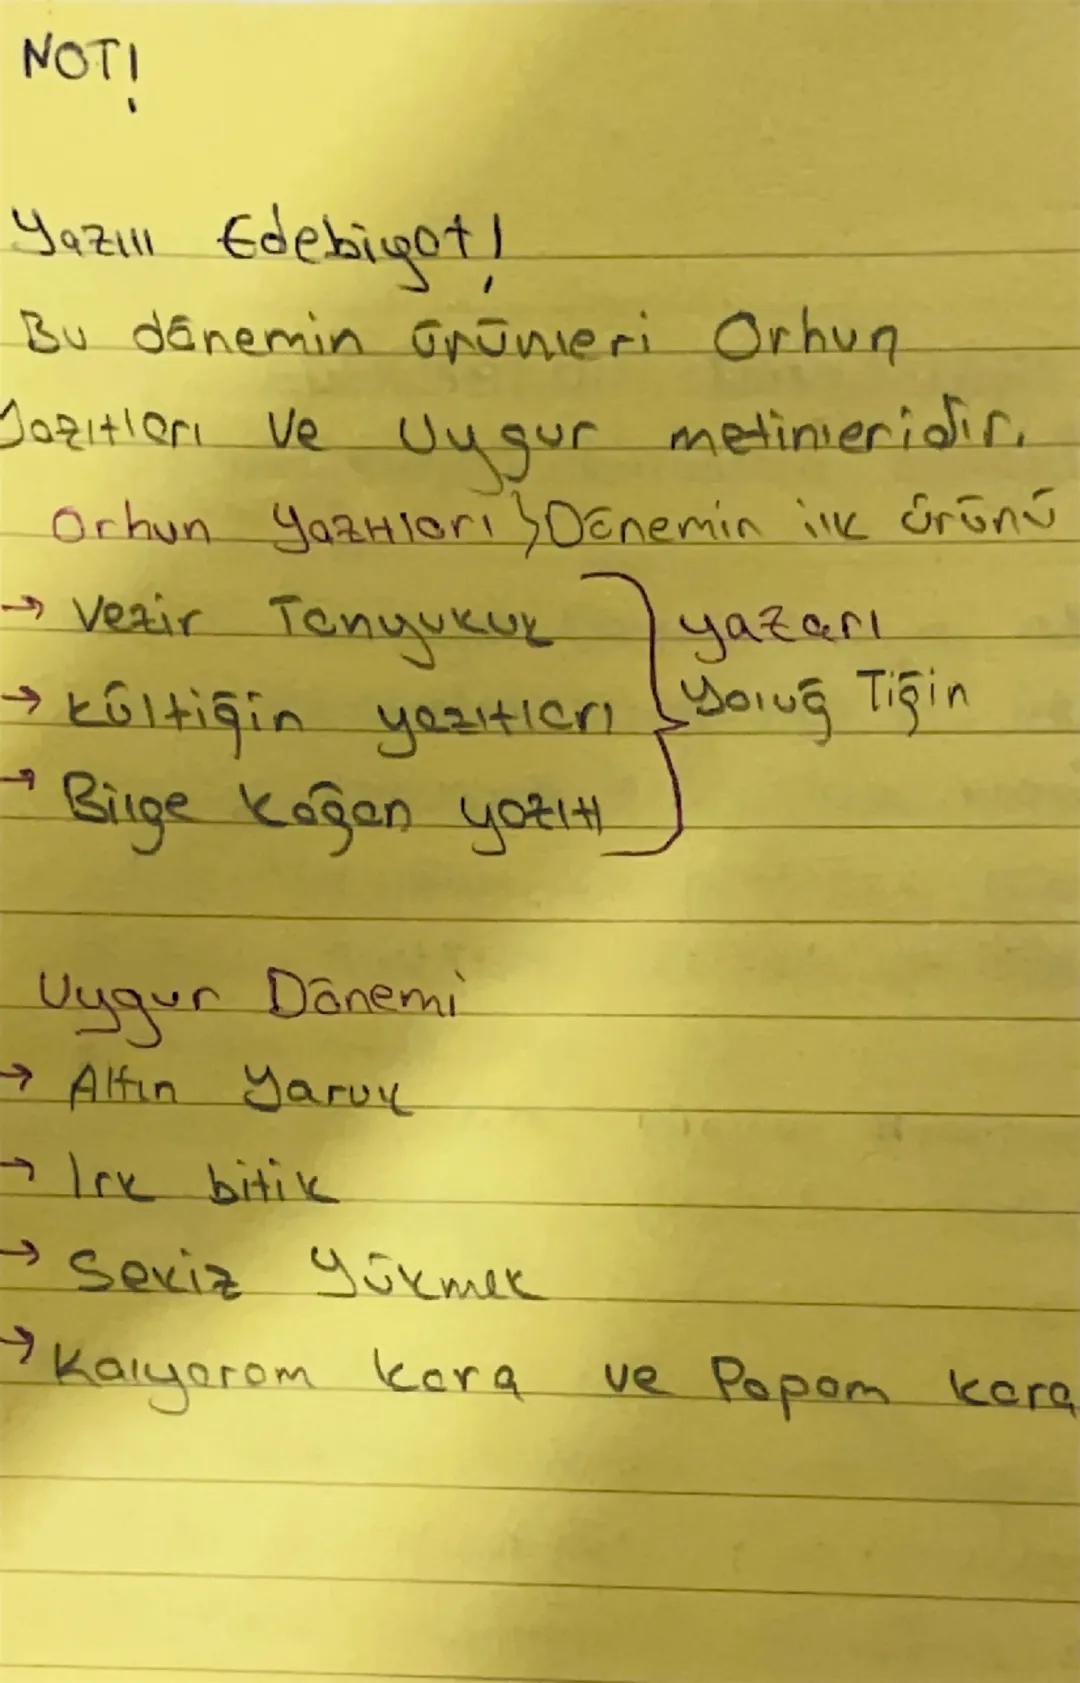 NOT!
Yazılı Edebiyat!
Bu dönemin ürünleri Orhun
Yazıtları ve Uygur metinleridir.
Orhun Yazıtları } Dönemin ilk ürünü
→ Vezir Tonyukuk
→ Kültiğin yazıtları
→ Bilge Kağan yazıtı
} yazarı
Yoluğ Tiğin
Uygur Dönemi
→ Altın Yaruk
→ Irk bitik
→ Sekiz Yükmek
→ Kalyanam kara ve Papam kara